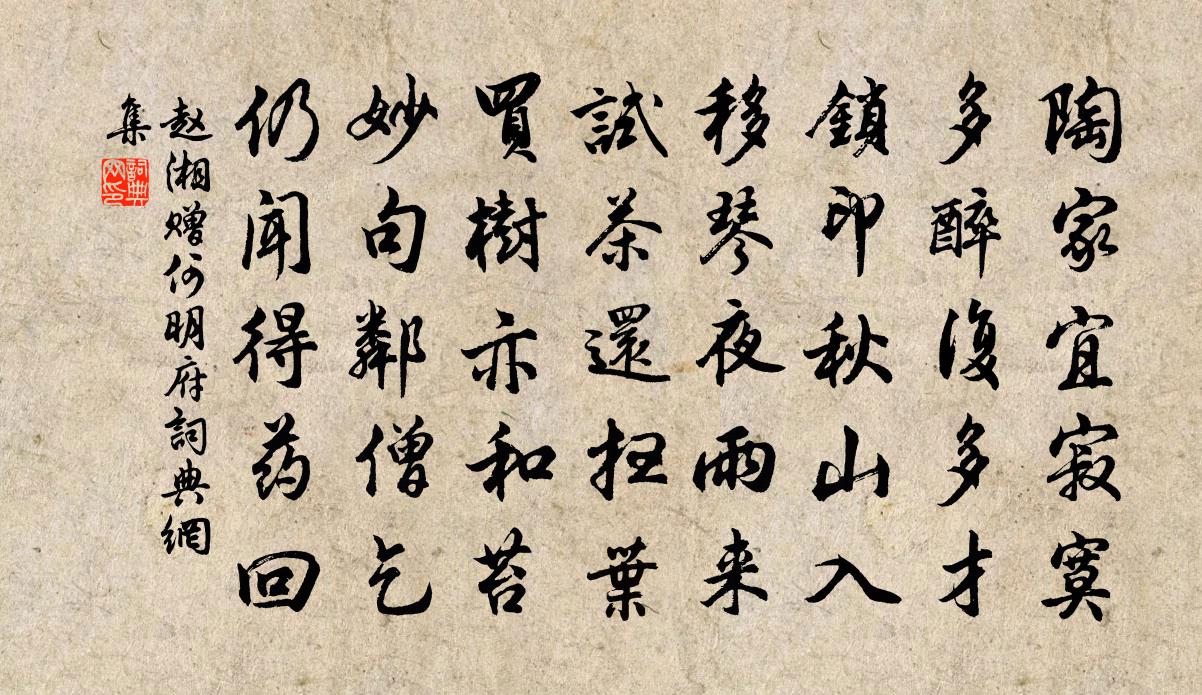 陶家宜寂寞
多醉復多才
鎖印秋山入
移琴夜雨来
試茶還扫葉
買樹亦和苔
妙句鄰僧乞
仍闻得药回
赵湘赠何明府詞典網
集
詞典網印